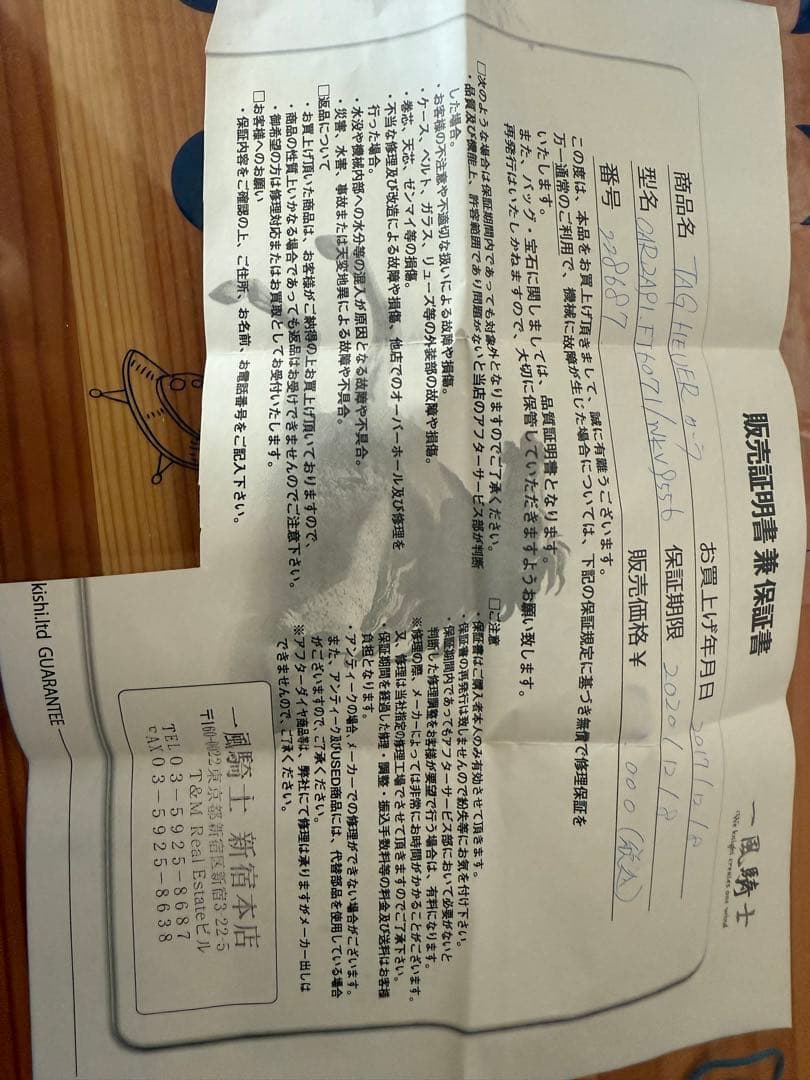 販売証明書 兼 保証書
一風騎士
We knight creates one wind.
お買上げ年月日 2017/12/18
商品名 TAG HEUER カレラ
保証期限 2020/12/18
型名 CAR2AP1.FT6071/WKV8556
販売価格¥ 000(税込)
番号 228687
この度は、本品をお買上げ頂きまして、誠に有難うございます。
万一通常のご利用で、機械に故障が生じた場合については、下記の保証規定に基づき無償で修理保証を
いたします。
また、バッグ・宝石に関しましては、品質証明書となります。
再発行はいたしかねますので、大切に保管していただきますようお願い致します。
□次のような場合は保証期間内であっても対象外となりますのでご了承ください。
・品質及び機能上、許容範囲であり問題がないと当店のアフターサービス部が判断
した場合。
・お客様の不注意や不適切な扱いによる故障や損傷。
・ケース、ベルト、ガラス、リューズ等の外装部の故障や損傷。
・巻芯、天芯、ゼンマイ等の損傷。
・不当な修理及び改造による故障や損傷、他店でのオーバーホール及び修理を
行った場合。
・水没や機械内部への水分等の混入が原因となる故障や不具合。
・災害、水害、事故または天変地異による故障や不具合。
□返品について
・お買上げ頂いた商品は、お客様がご納得の上お買上げ頂いておりますので、
商品の性質上いかなる場合であっても返品はお受けできませんのでご注意下さい。
・御希望の方は修理対応またはお買取としてお受付いたします。
□お客様へのお願い
・保証内容をご確認の上、ご住所、お名前、お電話番号をご記入下さい。
□ご注意
・保証書はご購入者本人のみ有効させて頂きます。
・保証書の再発行は致しませんので紛失等にお気を付け下さい。
・保証期間内であってもアフターサービス部において必要がないと
判断した修理調整をお客様が要望で行う場合は、有料になります。
※修理の際、メーカーによっては非常にお時間がかかることがございます。
又、修理は当社指定の修理工場でさせて頂きますのでご了承下さい。
・保証期間を経過した修理・調整・振込手数料等の料金及び送料はお客様
負担となります。
・アンティークの場合、メーカーでの修理ができない場合がございます。
また、アンティーク及びUSED商品には、代替部品を使用している場合
がございますので、ご了承ください。
※アフターダイヤ商品等は、弊社にて修理は承りますがメーカー出しは
できませんので、ご了承ください。
一風騎士 新宿本店
〒160-0022 東京都新宿区新宿3-22-5
T&M Real Estateビル
TEL 03-5925-8687
FAX 03-5925-8638
kishi.ltd GUARANTEE